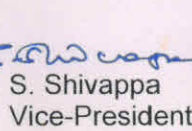 S. Shivappa
Vice-President